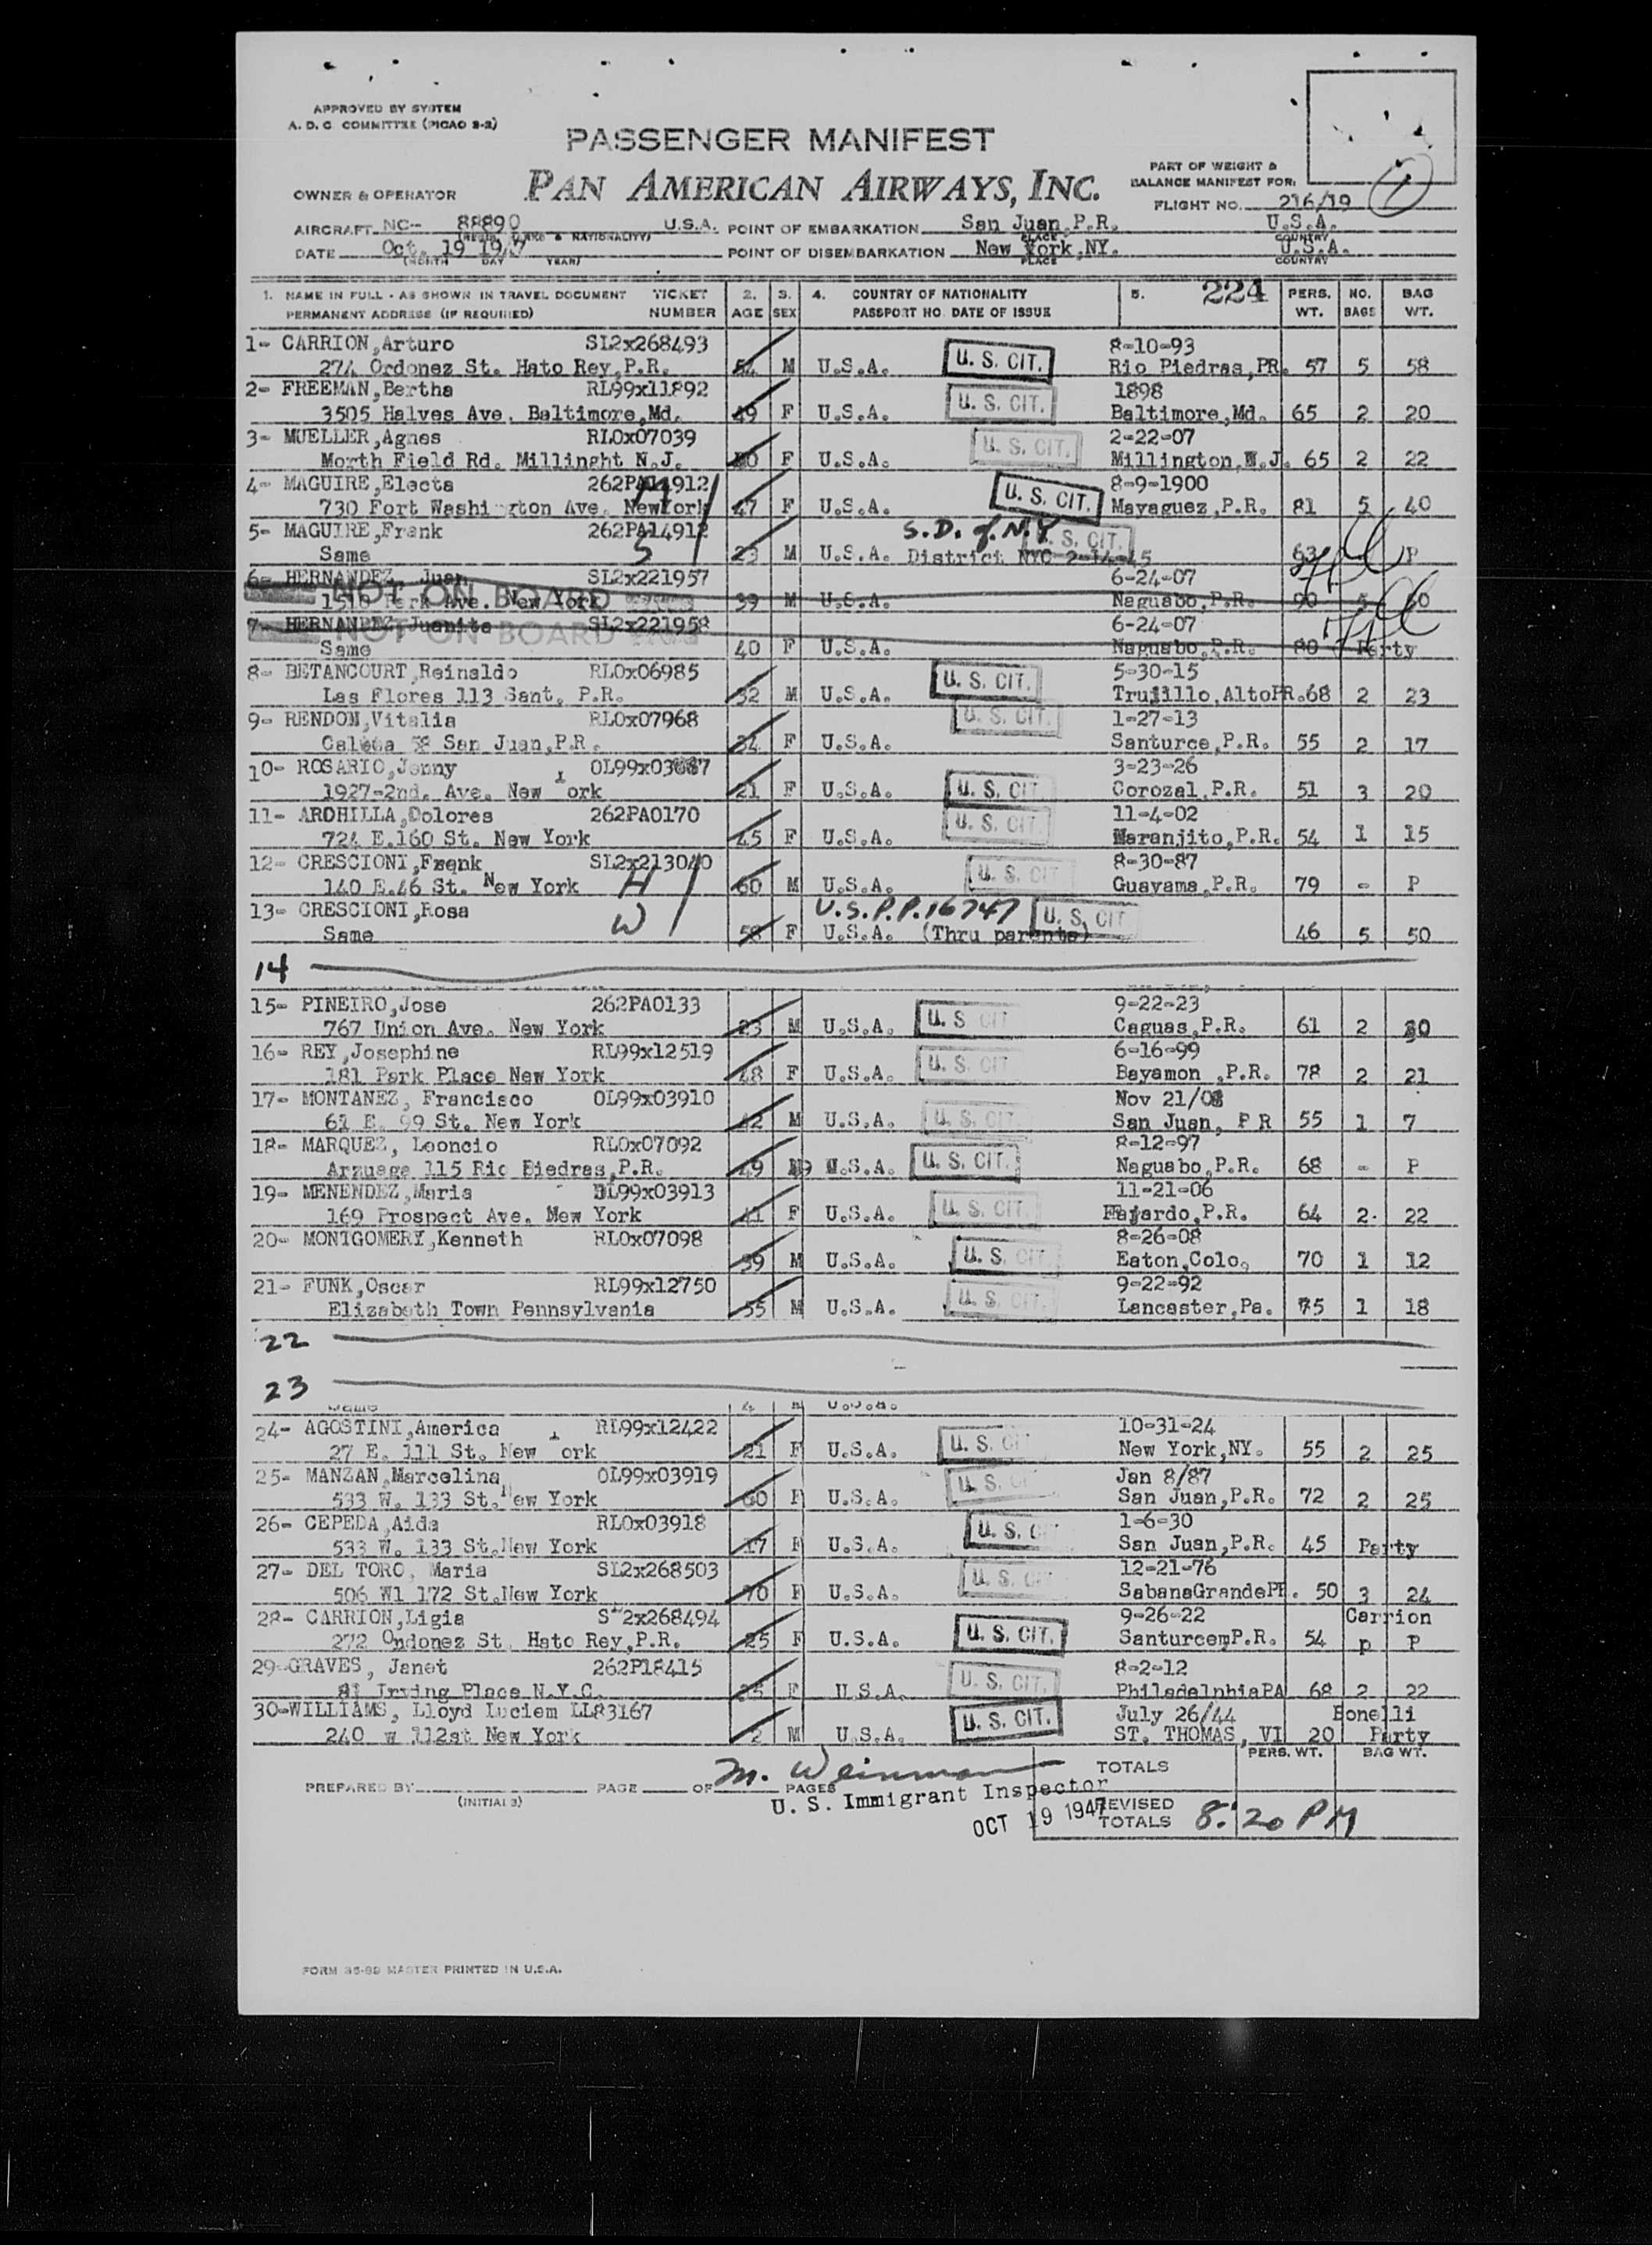 APPROVED BY SYSTEM
A. D. C. COMMITTEE (PICAO 2-2)
PASSENGER MANIFEST
PAN AMERICAN AIRWAYS, INC.
OWNER & OPERATOR
PART OF WEIGHT &
BALANCE MANIFEST FOR:
FLIGHT NO. 216/19
1
AIRCRAFT NC-- 88890 U.S.A. POINT OF EMBARKATION San Juan, P.R. U.S.A.
& NATIONALITY) PLACE COUNTRY
DATE Oct. 19 1947 POINT OF DISEMBARKATION New York, NY. U.S.A.
(MONTH DAY YEAR) PLACE COUNTRY
1. NAME IN FULL - AS SHOWN IN TRAVEL DOCUMENT TICKET 2. 3. 4. COUNTRY OF NATIONALITY 5. 224 PERS. NO. BAG
PERMANENT ADDRESS (IF REQUIRED) NUMBER AGE SEX PASSPORT NO. DATE OF ISSUE WT. BAGS WT.
1- CARRION,Arturo SL2x268493 8-10-93
274 Ordonez St. Hato Rey,P.R. 54 M U.S.A. U. S. CIT. Rio Piedras,PR. 57 5 58
2- FREEMAN,Bertha RL99x11892 1898
3505 Halves Ave. Baltimore,Md. 49 F U.S.A. U. S. CIT. Baltimore,Md. 65 2 20
3- MUELLER,Agnes RLOx07039 2-22-07
Morth Field Rd. Millinght N.J. 40 F U.S.A. U. S. CIT. Millington,N.J. 65 2 22
4- MAGUIRE,Electa 262PA14912 8-9-1900
M
730 Fort Washington Ave. NewYork 47 F U.S.A. U. S. CIT. Mayaguez,P.R. 81 5 40
5- MAGUIRE,Frank 262PA14912 S.D. of N.Y U. S. CIT.
S
Same 23 M U.S.A. District NYC 2-14-45 63 P
6- HERNANDEZ, Juan SL2x221957 6-24-07
NOT ON BOARD
1510 Park Ave. New York 39 M U.S.A. Naguabo,P.R. 90 5 60
7- HERNANDEZ,Juanita SL2x221958 6-24-07
NOT ON BOARD
Same 40 F U.S.A. Naguabo,P.R. 80 Party
8- BETANCOURT,Reinaldo RLOx06985 5-30-15
Las Flores 113 Sant. P.R. 32 M U.S.A. U. S. CIT. Trujillo,AltoPR.68 2 23
9- RENDON,Vitalia RLOx07968 1-27-13
Caleta 58 San Juan,P.R. 34 F U.S.A. U. S. CIT. Santurce,P.R. 55 2 17
10- ROSARIO,Jenny OL99x03887 3-23-26
1927-2nd. Ave. New York 21 F U.S.A. U. S. CIT Corozal,P.R. 51 3 20
11- ARDHILLA,Dolores 262PA0170 11-4-02
724 E.160 St. New York 45 F U.S.A. U. S. CIT Naranjito,P.R. 54 1 15
12- CRESCIONI,Frank SL2x213040 8-30-87
H
140 E.46 St. New York 60 M U.S.A. U. S. CIT Guayama,P.R. 79 - P
13- CRESCIONI,Rosa U.S.P.P.16747 U. S. CIT
W
Same 58 F U.S.A. (Thru parents) 46 5 50
14
15- PINEIRO,Jose 262PA0133 9-22-23
767 Union Ave. New York 23 M U.S.A. U. S CIT Caguas,P.R. 61 2 30
16- REY,Josephine RL99x12519 6-16-99
181 Park Place New York 48 F U.S.A. U. S. CIT Bayamon ,P.R. 78 2 21
17- MONTANEZ, Francisco OL99x03910 Nov 21/08
61 E. 99 St. New York 42 M U.S.A. U. S. CIT. San Juan, P R 55 1 7
18- MARQUEZ, Leoncio RLOx07092 8-12-97
Arzuaga 115 Rio Piedras,P.R. 49 M U.S.A. U. S. CIT. Naguabo,P.R. 68 - P
19- MENENDEZ,Maria OL99x03913 11-21-06
169 Prospect Ave. New York 41 F U.S.A. U. S. CIT Fajardo,P.R. 64 2. 22
20- MONTGOMERY,Kenneth RLOx07098 8-26-08
39 M U.S.A. U. S. CIT Eaton,Colo. 70 1 12
21- FUNK,Oscar RL99x12750 9-22-92
Elizabeth Town Pennsylvania 55 M U.S.A. U. S. CIT. Lancaster,Pa. 75 1 18
22
23
Same 4 M U.S.A.
24- AGOSTINI,America RL99x12422 10-31-24
27 E. 111 St. New York 21 F U.S.A. U. S. CI New York,NY. 55 2 25
25- MANZAN,Marcelina OL99x03919 Jan 8/87
533 W. 133 St.New York 60 F U.S.A. U. S. C San Juan,P.R. 72 2 25
26- CEPEDA,Aida RLOx03918 1-6-30
533 W. 133 St.New York 17 F U.S.A. U. S. C San Juan,P.R. 45 Party
27- DEL TORO, Maria SL2x268503 12-21-76
506 W1 172 St.New York 70 F U.S.A. U. S. C SabanaGrandePR. 50 3 24
28- CARRION,Ligia SL2x268494 9-26-22 Carrion
272 Ondonez St Hato Rey,P.R. 25 F U.S.A. U. S. CIT. SanturcemP.R. 54 p P
29-GRAVES, Janet 262P18415 8-2-12
81 Irving Place N.Y.C. 35 F U.S.A. U. S. CIT. PhiladelphiaPA 68 2 22
30-WILLIAMS, Lloyd Luciem LL83167 July 26/44 Bonelli
240 w 112st New York 2 M U.S.A. U. S. CIT. ST. THOMAS, VI 20 Party
PERS. WT. BAG WT.
TOTALS
M. Weinman
PREPARED BY PAGE OF PAGES
(INITIALS)
U. S. Immigrant Inspector
OCT 19 1947
REVISED
TOTALS 8:20 PM
FORM 35-89 MASTER PRINTED IN U.S.A.